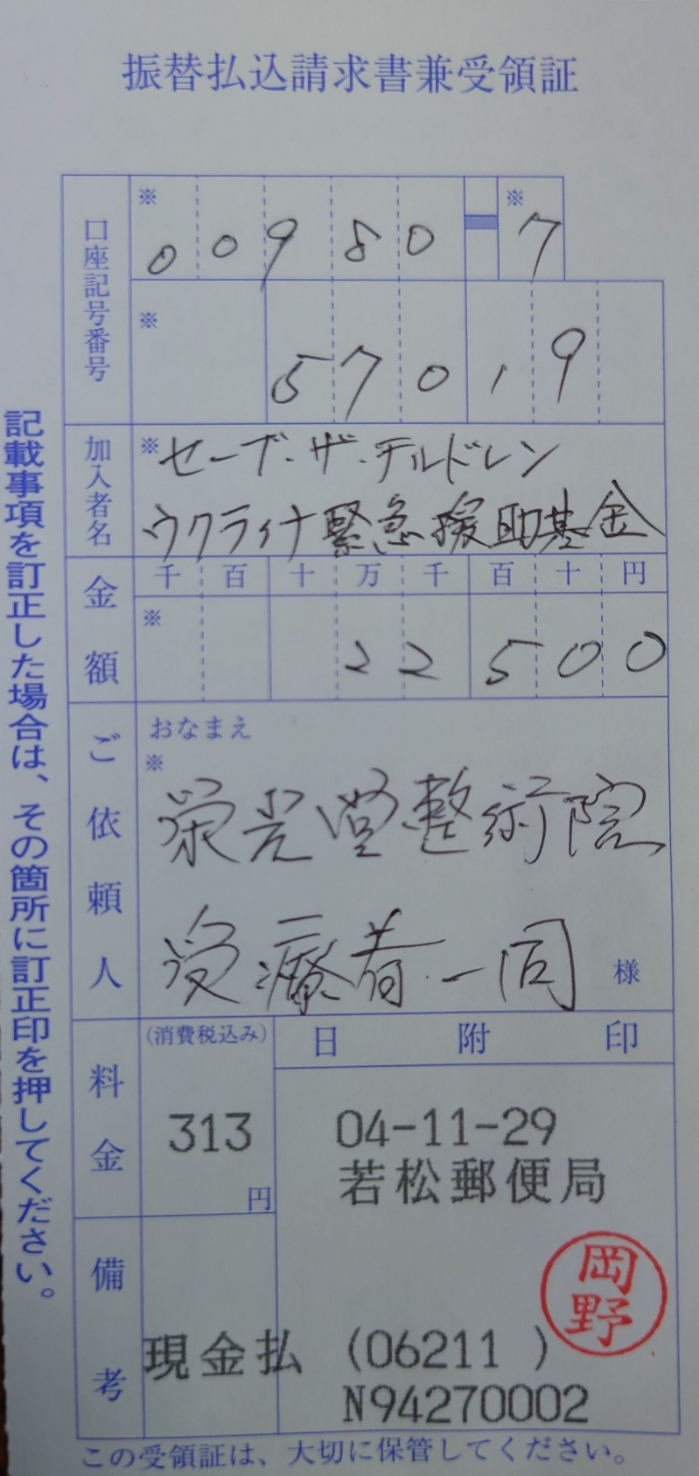 振替払込請求書兼受領証
口座記号番号
※ 00980-※7
※ 57019
加入者名
※セーブ・ザ・チルドレン
ウクライナ緊急援助基金
金額
千百十万千百十円
※ 22500
ご依頼人
おなまえ
※
栄光堂整術院
受療者一同 様
料金
(消費税込み)
313
円
日附印
04-11-29
若松郵便局
岡野
備考
現金払 (06211 )
N94270002
この受領証は、大切に保管してください。
記載事項を訂正した場合は、その箇所に訂正印を押してください。